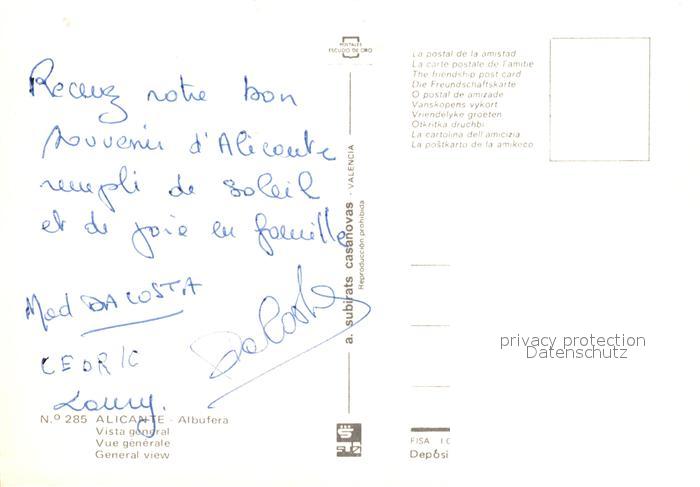 Recevez notre bon
souvenir d'Alicante
rempli de soleil
et de joie en famille
Mad DA COSTA
DaCosta
CEDRIC
N.º 285 ALICANTE - Albufera
Vista general
Vue générale
General view
POSTALES
ESCUDO DE ORO
a. subirats casanovas - VALENCIA
Reproducción prohibida
La postal de la amistad
La carte postale de l'amitie
The friendship post card
Die Freundschaftskarte
O postal de amizade
Vanskapens vykort
Vriendelyke groeten
Otkritka druchbi
La cartolina dell'amicizia
La poŝtkarto de la amikeco
privacy protection
Datenschutz
FISA I.G
Depósi